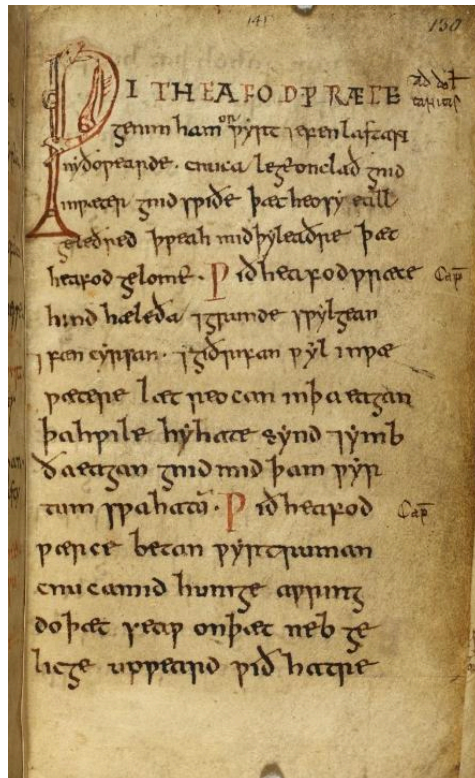 141 130
ǷI THEAFODǷRÆCE
genim hamorƿyrt ⁊ efenlastan
nyðoƿearde · cnuca lege on clað gnid
in ƿæter gnid sƿiðe þæt heo sy eall
geleðred þƿeah mid þy leaðre þæt
heafod gelome · Ƿið heafodƿræce Cap̄
hind hæleða ⁊ grunde sƿylgean
⁊ fæn cyrsan · ⁊ giðrifan ƿyl in ƿæ
ƿætere læt reocan in þa eagan
þa hƿile hy hate synd ⁊ ymb
ða eagan gnid mid þam ƿyr
tum sƿa hatū · Ƿið heafod Cap̄
ƿærce betan ƿyrtruman
cnuca mid hunige aƿring
do þæt seaƿ on þæt neb ge
licge uppeard ƿið hatre